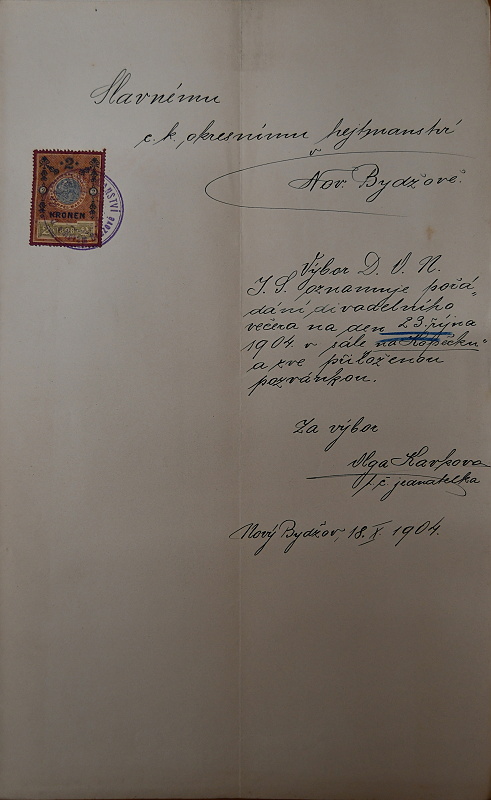 Slavnému
c. k. okresnímu hejtmanství
v
Nov. Bydžově.
2
KRONEN
Výbor D. V. N.
J. S. oznamuje pořá-
dání divadelního
večera na den 23. října
1904 v sále "na Kopečku"
a zve přiloženou
pozvánkou.
Za výbor
Olga
t. č. jednatelka
Nový Bydžov, 18. X. 1904.